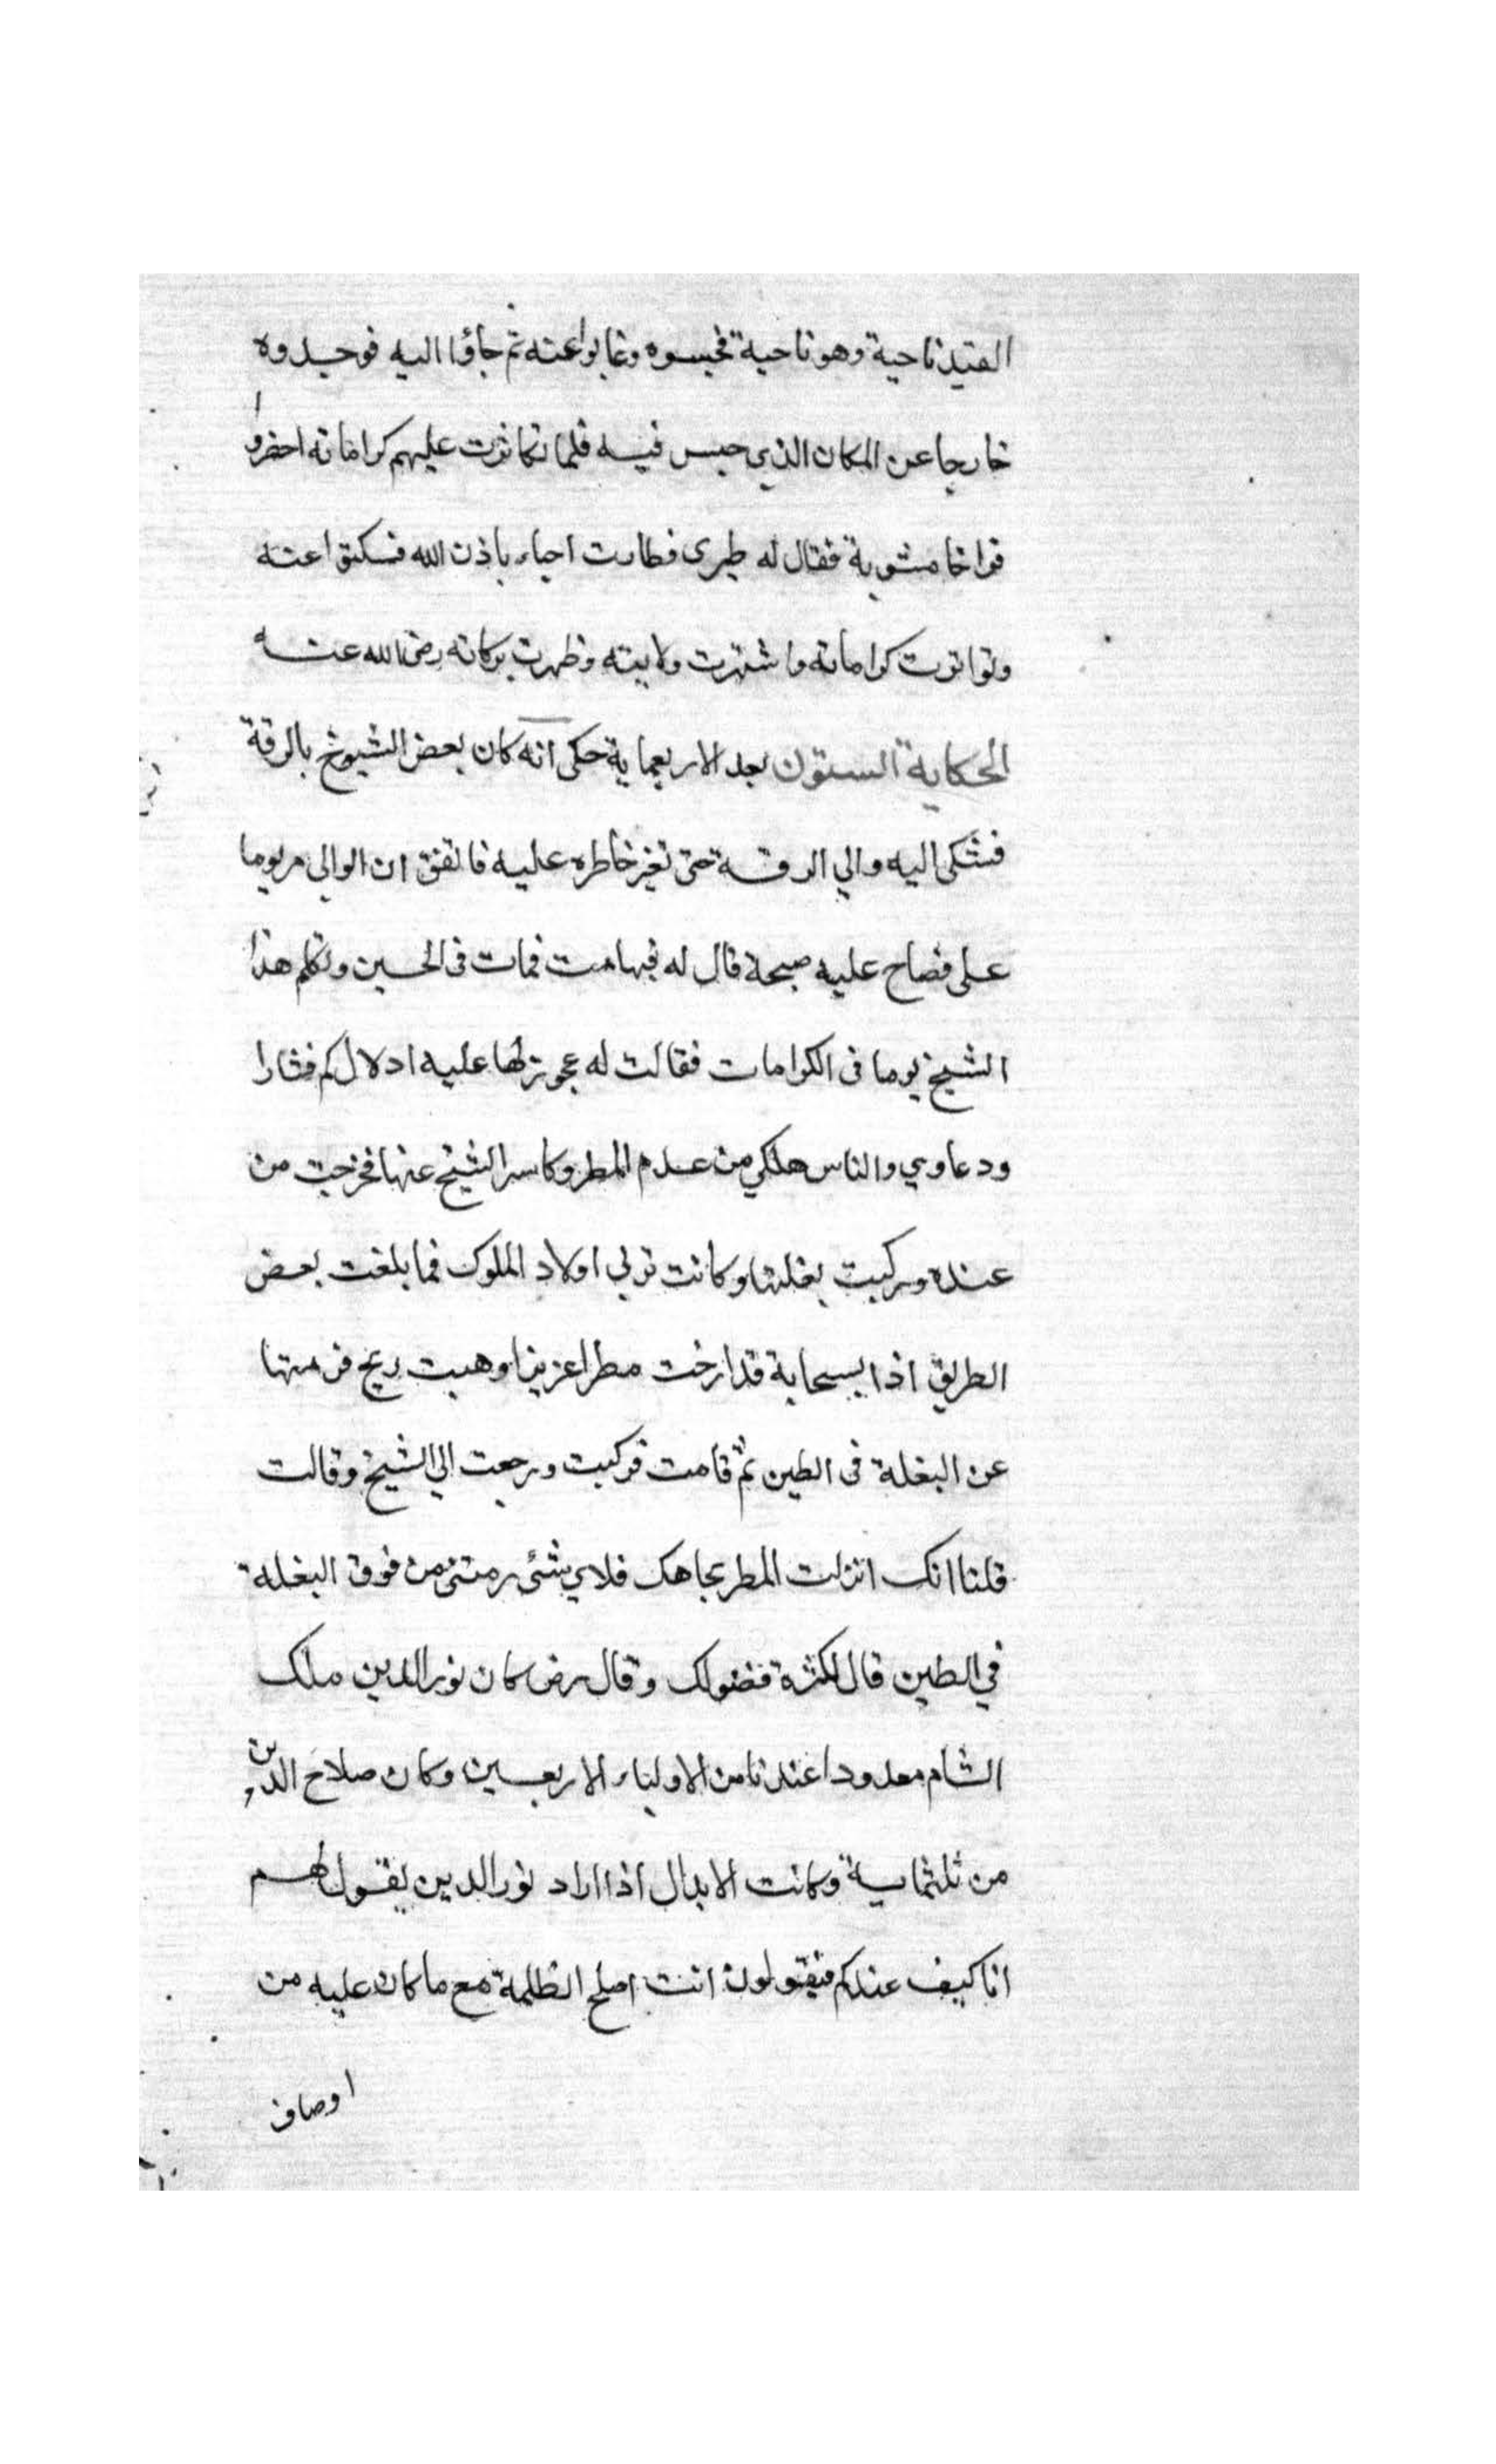 القيد ناحية وهو ناحية فحبسوه وغابوا عنه ثم جاؤا اليه فوجدوه
خارجا عن المكان الذي حبس فيه فلما تكاثرت عليهم كراماته احضروا
فراخا مشوية فقال له طيرى فطارت احياء باذن الله فسكتوا عنه
وتواترت كراماته واشتهرت ولايته وظهرت بركاته رضى الله عنه
الحكاية الستون بعد الاربعماية حكى انه كان بعض الشيوخ بالرقة
فشكى اليه والي الرقة حتى تغير خاطره عليه فاتفق ان الوالي مر يوما
على فصاح عليه صيحة قال له فيها مت فمات فى الحين وتكلم هذا
الشيخ يوما فى الكرامات فقالت له عجوز لها عليه ادلال كم فشارا
ودعاوي والناس هلكي من عدم المطر وكاسر الشيخ عنها فخرجت من
عنده وركبت بغلتها وكانت تربي اولاد الملوك فما بلغت بعض
الطريق اذا بسحابة قد ارخت مطرا عزيزا وهبت ريح فرمتها
عن البغلة فى الطين ثم قامت فركبت ورجعت الي الشيخ وقالت
قلنا انك انزلت المطر بجاهك فلاي شئ رمتنى من فوق البغلة
في الطين قال لكثرة فضولك وقال رض كان نور الدين ملك
الشام معدودا عندنا من الاولياء الاربعين وكان صلاح الدين
من ثلثماية وكانت الابدال اذا اراد نور الدين يقول لهم
انا كيف عندكم فيقولون انت اصلح الظلمة مع ما كان عليه من
اوصاف